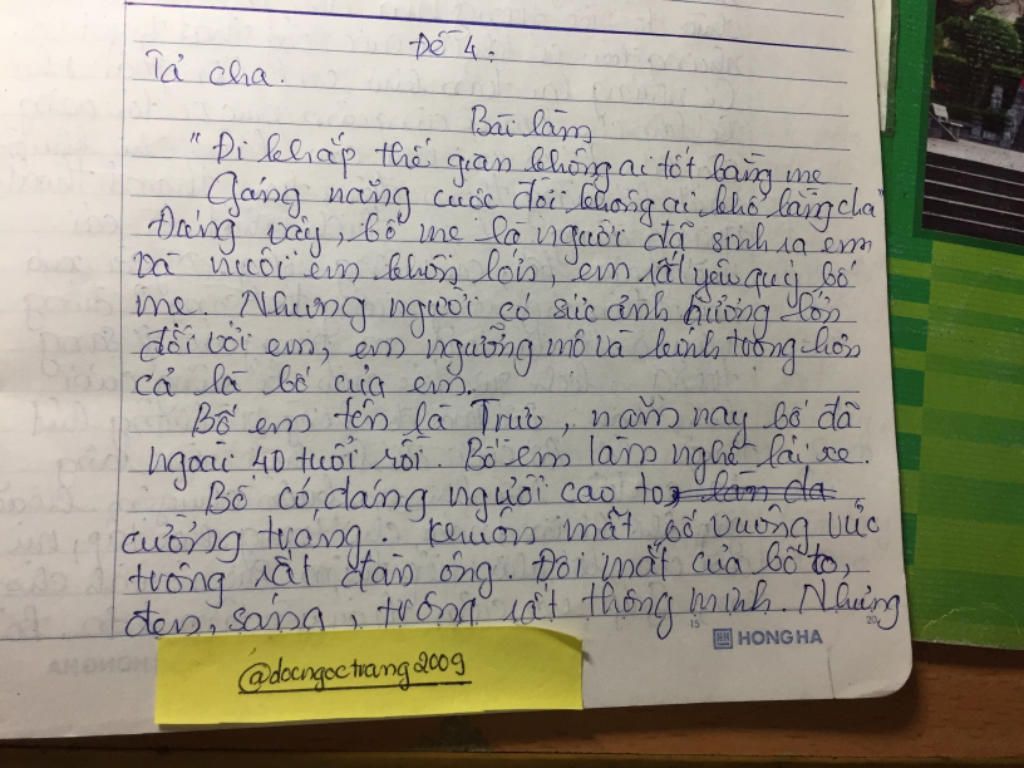 Đề 4:
Tả cha.
Bài làm
"Đi khắp thế gian không ai tốt bằng mẹ
Gánh nặng cuộc đời không ai khổ bằng cha"
Đúng vậy, bố mẹ là người đã sinh ra em
và nuôi em khôn lớn, em rất yêu quý bố
mẹ. Nhưng người có sức ảnh hưởng lớn
đối với em, em ngưỡng mộ và kính tượng hơn
cả là bố của em.
Bố em tên là Trực, năm nay bố đã
ngoài 40 tuổi rồi. Bố em làm nghề lái xe.
Bố có dáng người cao to, làn da
cường tráng. Khuôn mặt bố vuông vức
trông rất đàn ông. Đôi mắt của bố to,
đen, sáng, trông rất thông minh. Những
HONG HA
@docngoctrang2009